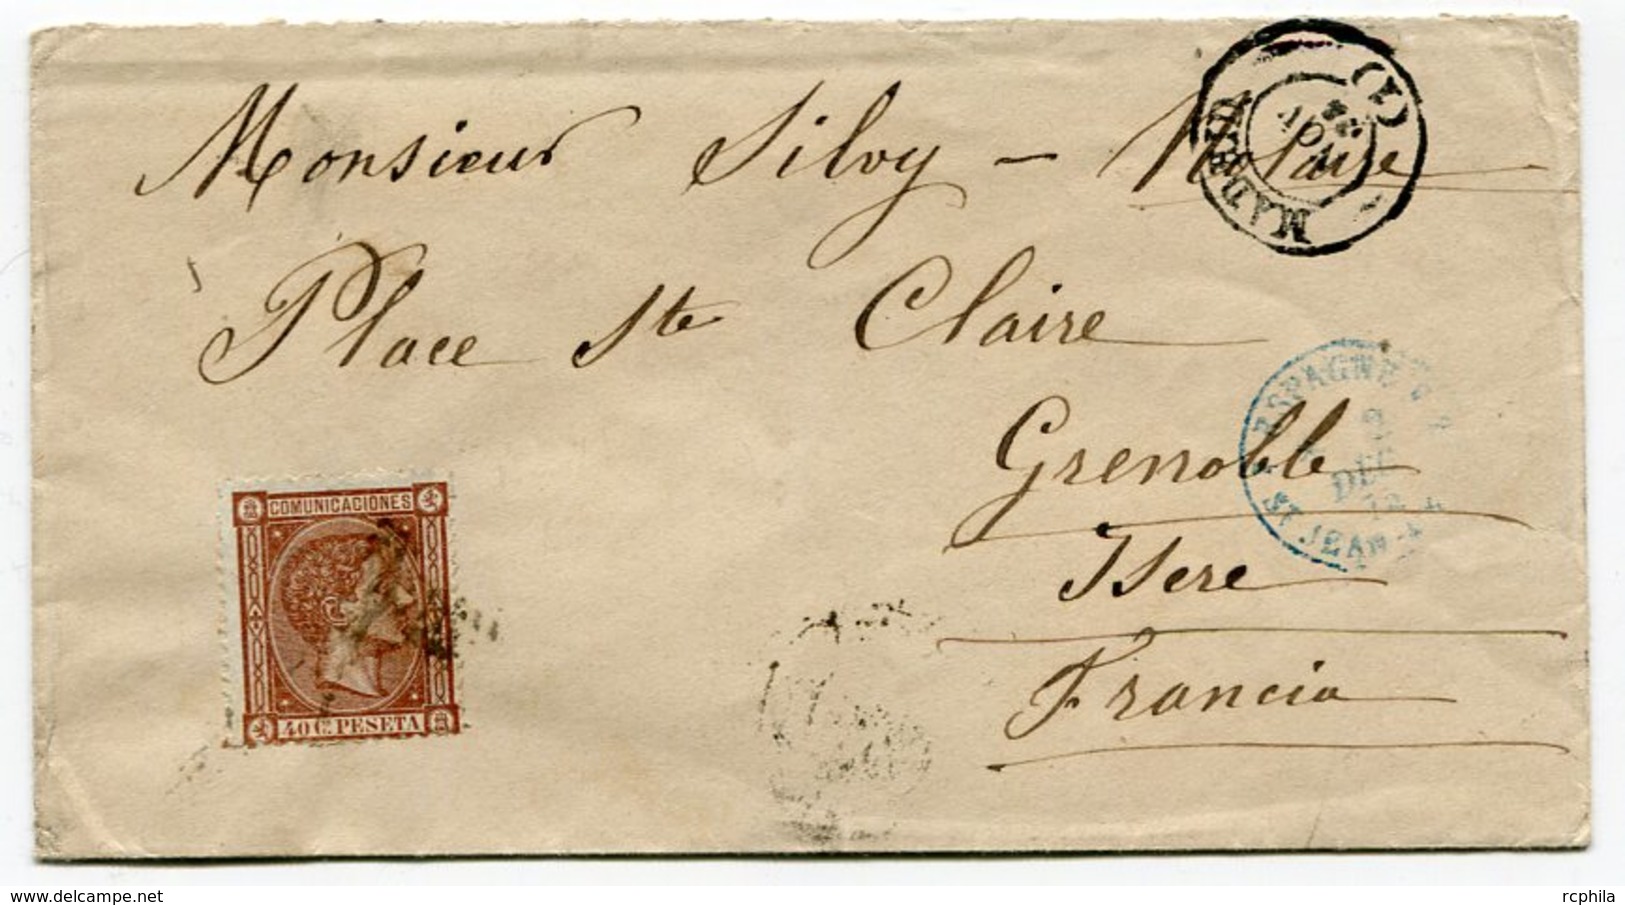 Monsieur Silvy - Notaire
Place Ste Claire
Grenoble
Isere
Francia
MADRID
(1)
NOV
ESPAGNE
2
DEC
ST JEAN
COMUNICACIONES
40 Cs PESETA
delcampe.net
rcphila